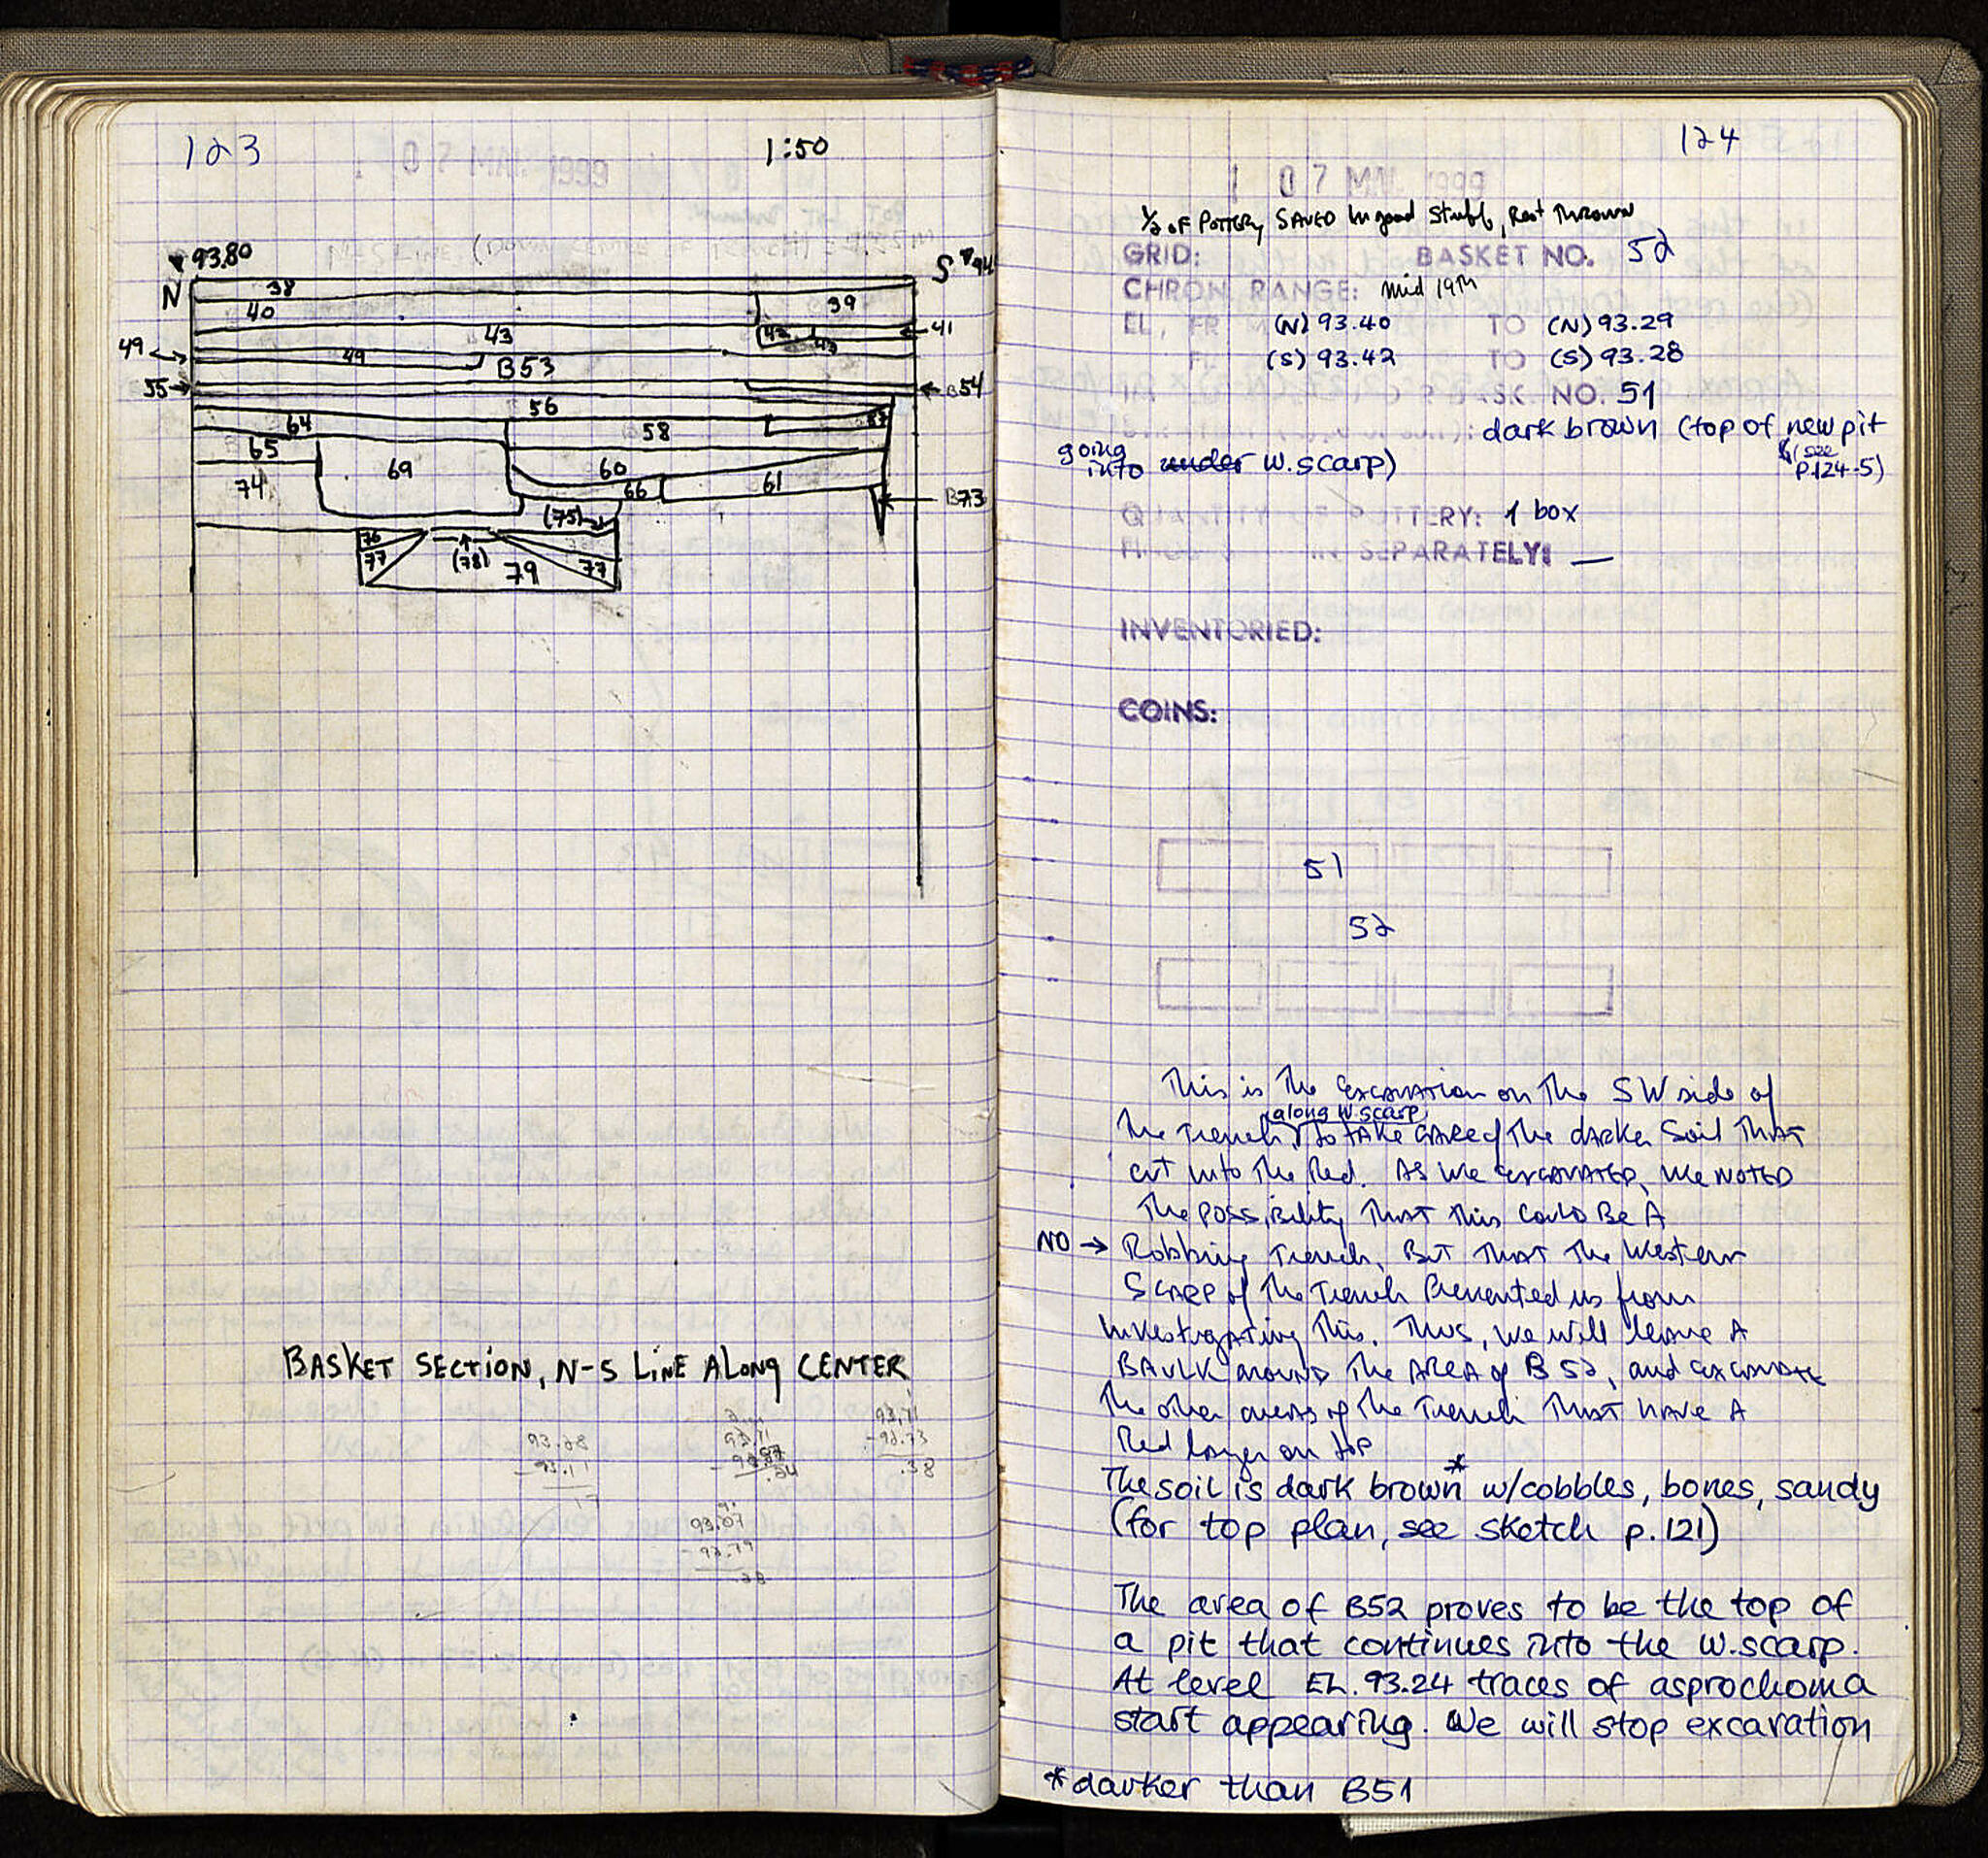 123
1:50
93.80
N
S
38
40
39
43
42
41
49
49
B53
55
B54
56
64
58
57
65
69
60
74
66
61
B73
(75)
76
77
(78)
79
77
BASKET SECTION, N-S LINE ALONG CENTER
93.07
124
07 MAI 1999
1/2 OF POTTERY SAVED in good Stuff, Rest Thrown
GRID: BASKET NO. 52
CHRON. RANGE: mid 19th
EL, FR (N) 93.40 TO (N) 93.29
(S) 93.42 TO (S) 93.28
NO. 51
: dark brown (top of new pit
going
into under W. scarp)
(see
p.124-5)
POTTERY: 1 box
SEPARATELY: —
INVENTORIED:
COINS:
51
52
This is the excavation on the SW side of
along W. scarp
the trench to take care of the darker soil that
cut into the Red. As we excavated, we noted
the possibility that this could be a
NO → Robbing trench, But that the Western
Scarp of the trench Prevented us from
investigating this. Thus, we will leave a
BAULK around the area of B52, and excavate
the other areas of the trench that have a
Red layer on top
The soil is dark brown* w/cobbles, bones, sandy
(for top plan, see sketch p.121)
The area of B52 proves to be the top of
a pit that continues into the w.scarp.
At level EL. 93.24 traces of asprochoma
start appearing. We will stop excavation
*darker than B51